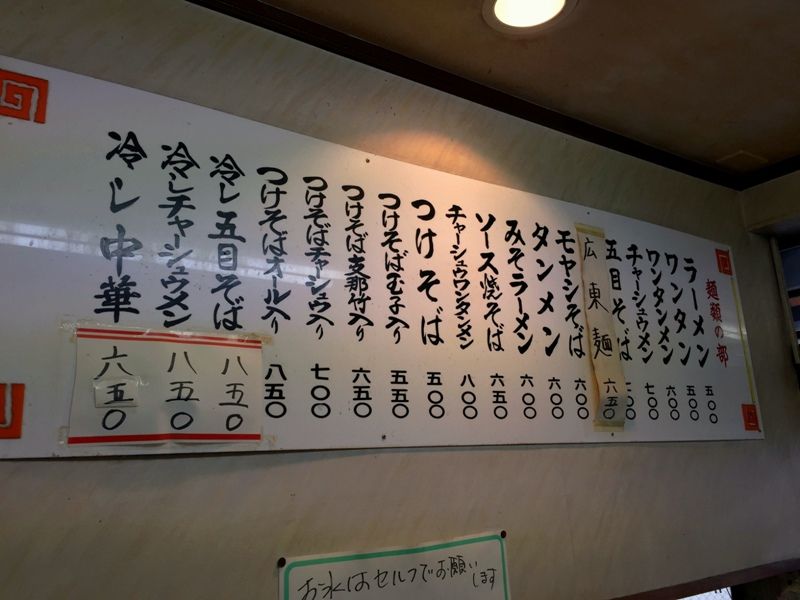 麺類の部
ラーメン 五〇〇
ワンタン 五〇〇
ワンタンメン 六〇〇
チャーシュウメン 七〇〇
五目そば 七〇〇
広東麺 六五〇
モヤシそば 六〇〇
タンメン 六〇〇
みそラーメン 六〇〇
ソース焼そば 六五〇
チャーシュウワンタンメン 八〇〇
つけそば 五〇〇
つけそば玉子入り 五五〇
つけそば支那竹入り 六五〇
つけそばチャーシュウ入り 七〇〇
つけそばオール入り 八五〇
冷し五目そば 八五〇
冷しチャーシュウメン 八五〇
冷し中華 六五〇
お水はセルフでお願いします